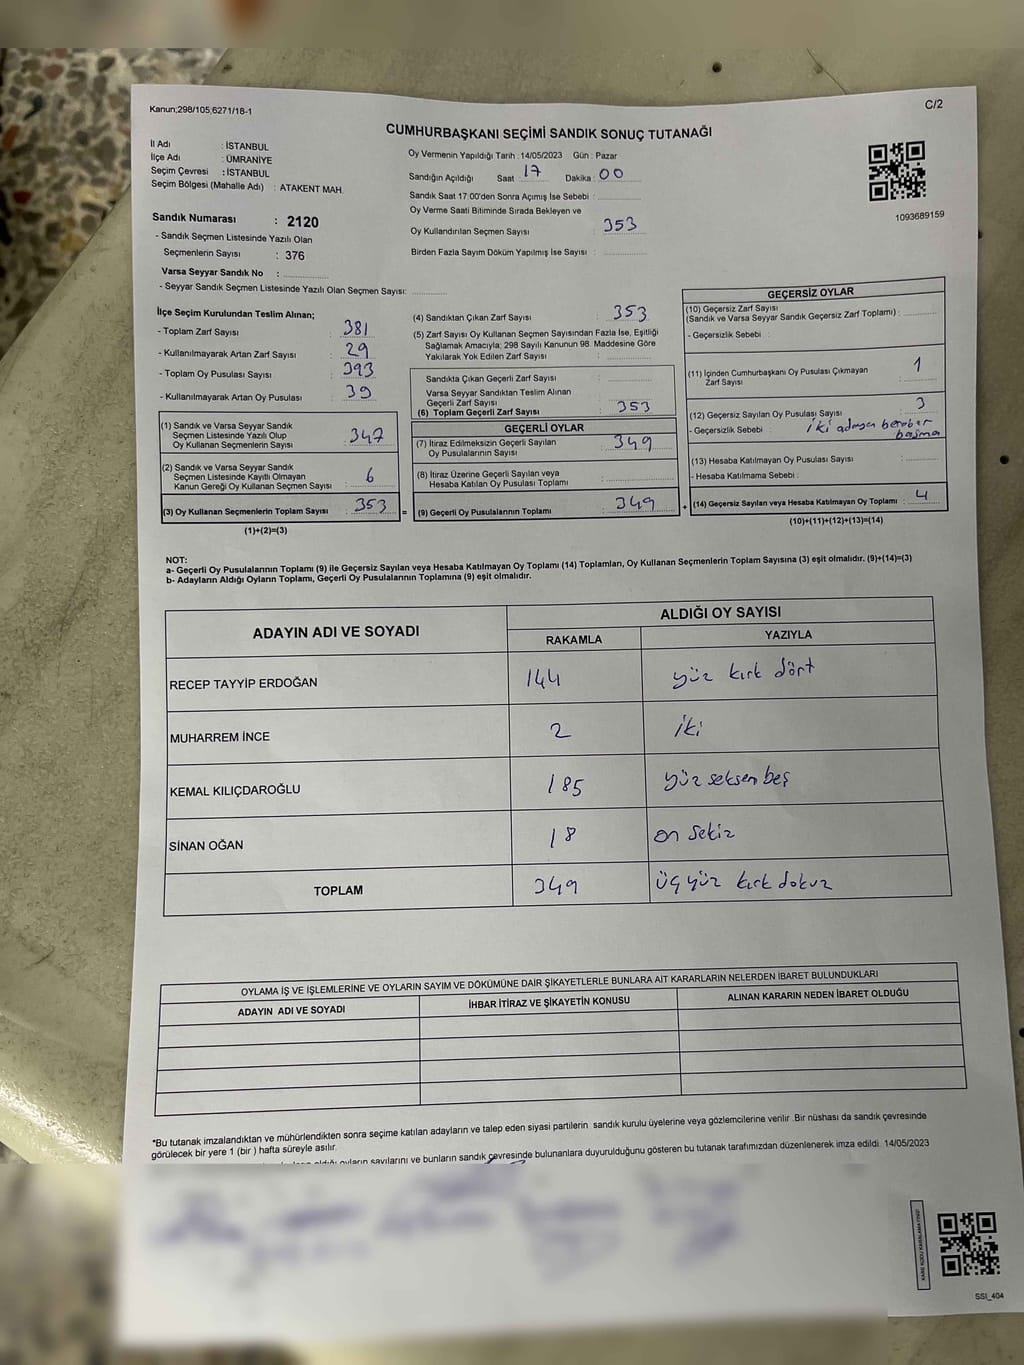 Kanun;298/105,6271/18-1
C/2
CUMHURBAŞKANI SEÇİMİ SANDIK SONUÇ TUTANAĞI
İl Adı : İSTANBUL
İlçe Adı : ÜMRANİYE
Seçim Çevresi : İSTANBUL
Seçim Bölgesi (Mahalle Adı) : ATAKENT MAH.
Sandık Numarası : 2120
- Sandık Seçmen Listesinde Yazılı Olan
Seçmenlerin Sayısı : 376
Varsa Seyyar Sandık No :
- Seyyar Sandık Seçmen Listesinde Yazılı Olan Seçmen Sayısı:
Oy Vermenin Yapıldığı Tarih : 14/05/2023 Gün : Pazar
Sandığın Açıldığı Saat 17 Dakika : 00
Sandık Saat 17:00'den Sonra Açımış İse Sebebi :
Oy Verme Saati Bitiminde Sırada Bekleyen ve
Oy Kullandırılan Seçmen Sayısı : 353
Birden Fazla Sayım Döküm Yapılmış İse Sayısı :
1093689159
İlçe Seçim Kurulundan Teslim Alınan;
- Toplam Zarf Sayısı : 381
- Kullanılmayarak Artan Zarf Sayısı : 29
- Toplam Oy Pusulası Sayısı : 393
- Kullanılmayarak Artan Oy Pusulası : 39
(1) Sandık ve Varsa Seyyar Sandık
Seçmen Listesinde Yazılı Olup
Oy Kullanan Seçmenlerin Sayısı : 347
(2) Sandık ve Varsa Seyyar Sandık
Seçmen Listesinde Kayıtlı Olmayan
Kanun Gereği Oy Kullanan Seçmen Sayısı : 6
(3) Oy Kullanan Seçmenlerin Toplam Sayısı : 353 =
(1)+(2)=(3)
(4) Sandıktan Çıkan Zarf Sayısı : 353
(5) Zarf Sayısı Oy Kullanan Seçmen Sayısından Fazla İse, Eşitliği
Sağlamak Amacıyla; 298 Sayılı Kanunun 98. Maddesine Göre
Yakılarak Yok Edilen Zarf Sayısı :
Sandıkta Çıkan Geçerli Zarf Sayısı :
Varsa Seyyar Sandıktan Teslim Alınan
Geçerli Zarf Sayısı :
(6) Toplam Geçerli Zarf Sayısı : 353
GEÇERLİ OYLAR
(7) İtiraz Edilmeksizin Geçerli Sayılan
Oy Pusulalarının Sayısı : 349
(8) İtiraz Üzerine Geçerli Sayılan veya
Hesaba Katılan Oy Pusulası Toplamı :
(9) Geçerli Oy Pusulalarının Toplamı : 349 +
GEÇERSİZ OYLAR
(10) Geçersiz Zarf Sayısı
(Sandık ve Varsa Seyyar Sandık Geçersiz Zarf Toplamı) :
- Geçersizlik Sebebi :
(11) İçinden Cumhurbaşkanı Oy Pusulası Çıkmayan
Zarf Sayısı : 1
(12) Geçersiz Sayılan Oy Pusulası Sayısı : 3
- Geçersizlik Sebebi : iki adaya beraber
basma
(13) Hesaba Katılmayan Oy Pusulası Sayısı :
- Hesaba Katılmama Sebebi :
(14) Geçersiz Sayılan veya Hesaba Katılmayan Oy Toplamı : 4
(10)+(11)+(12)+(13)=(14)
NOT:
a- Geçerli Oy Pusulalarının Toplamı (9) ile Geçersiz Sayılan veya Hesaba Katılmayan Oy Toplamı (14) Toplamları, Oy Kullanan Seçmenlerin Toplam Sayısına (3) eşit olmalıdır. (9)+(14)=(3)
b- Adayların Aldığı Oyların Toplamı, Geçerli Oy Pusulalarının Toplamına (9) eşit olmalıdır.
ADAYIN ADI VE SOYADI
ALDIĞI OY SAYISI
RAKAMLA YAZIYLA
RECEP TAYYİP ERDOĞAN 144 yüz kırk dört
MUHARREM İNCE 2 iki
KEMAL KILIÇDAROĞLU 185 yüz seksen beş
SİNAN OĞAN 18 on sekiz
TOPLAM 349 üç yüz kırk dokuz
OYLAMA İŞ VE İŞLEMLERİNE VE OYLARIN SAYIM VE DÖKÜMÜNE DAİR ŞİKAYETLERLE BUNLARA AİT KARARLARIN NELERDEN İBARET BULUNDUKLARI
ADAYIN ADI VE SOYADI İHBAR İTİRAZ VE ŞİKAYETİN KONUSU ALINAN KARARIN NEDEN İBARET OLDUĞU
*Bu tutanak imzalandıktan ve mühürlendikten sonra seçime katılan adayların ve talep eden siyasi partilerin sandık kurulu üyelerine veya gözlemcilerine verilir .Bir nüshası da sandık çevresinde
görülecek bir yere 1 (bir ) hafta süreyle asılır.
oyların sayılarını ve bunların sandık çevresinde bulunanlara duyurulduğunu gösteren bu tutanak tarafımızdan düzenlenerek imza edildi. 14/05/2023
SSI_404